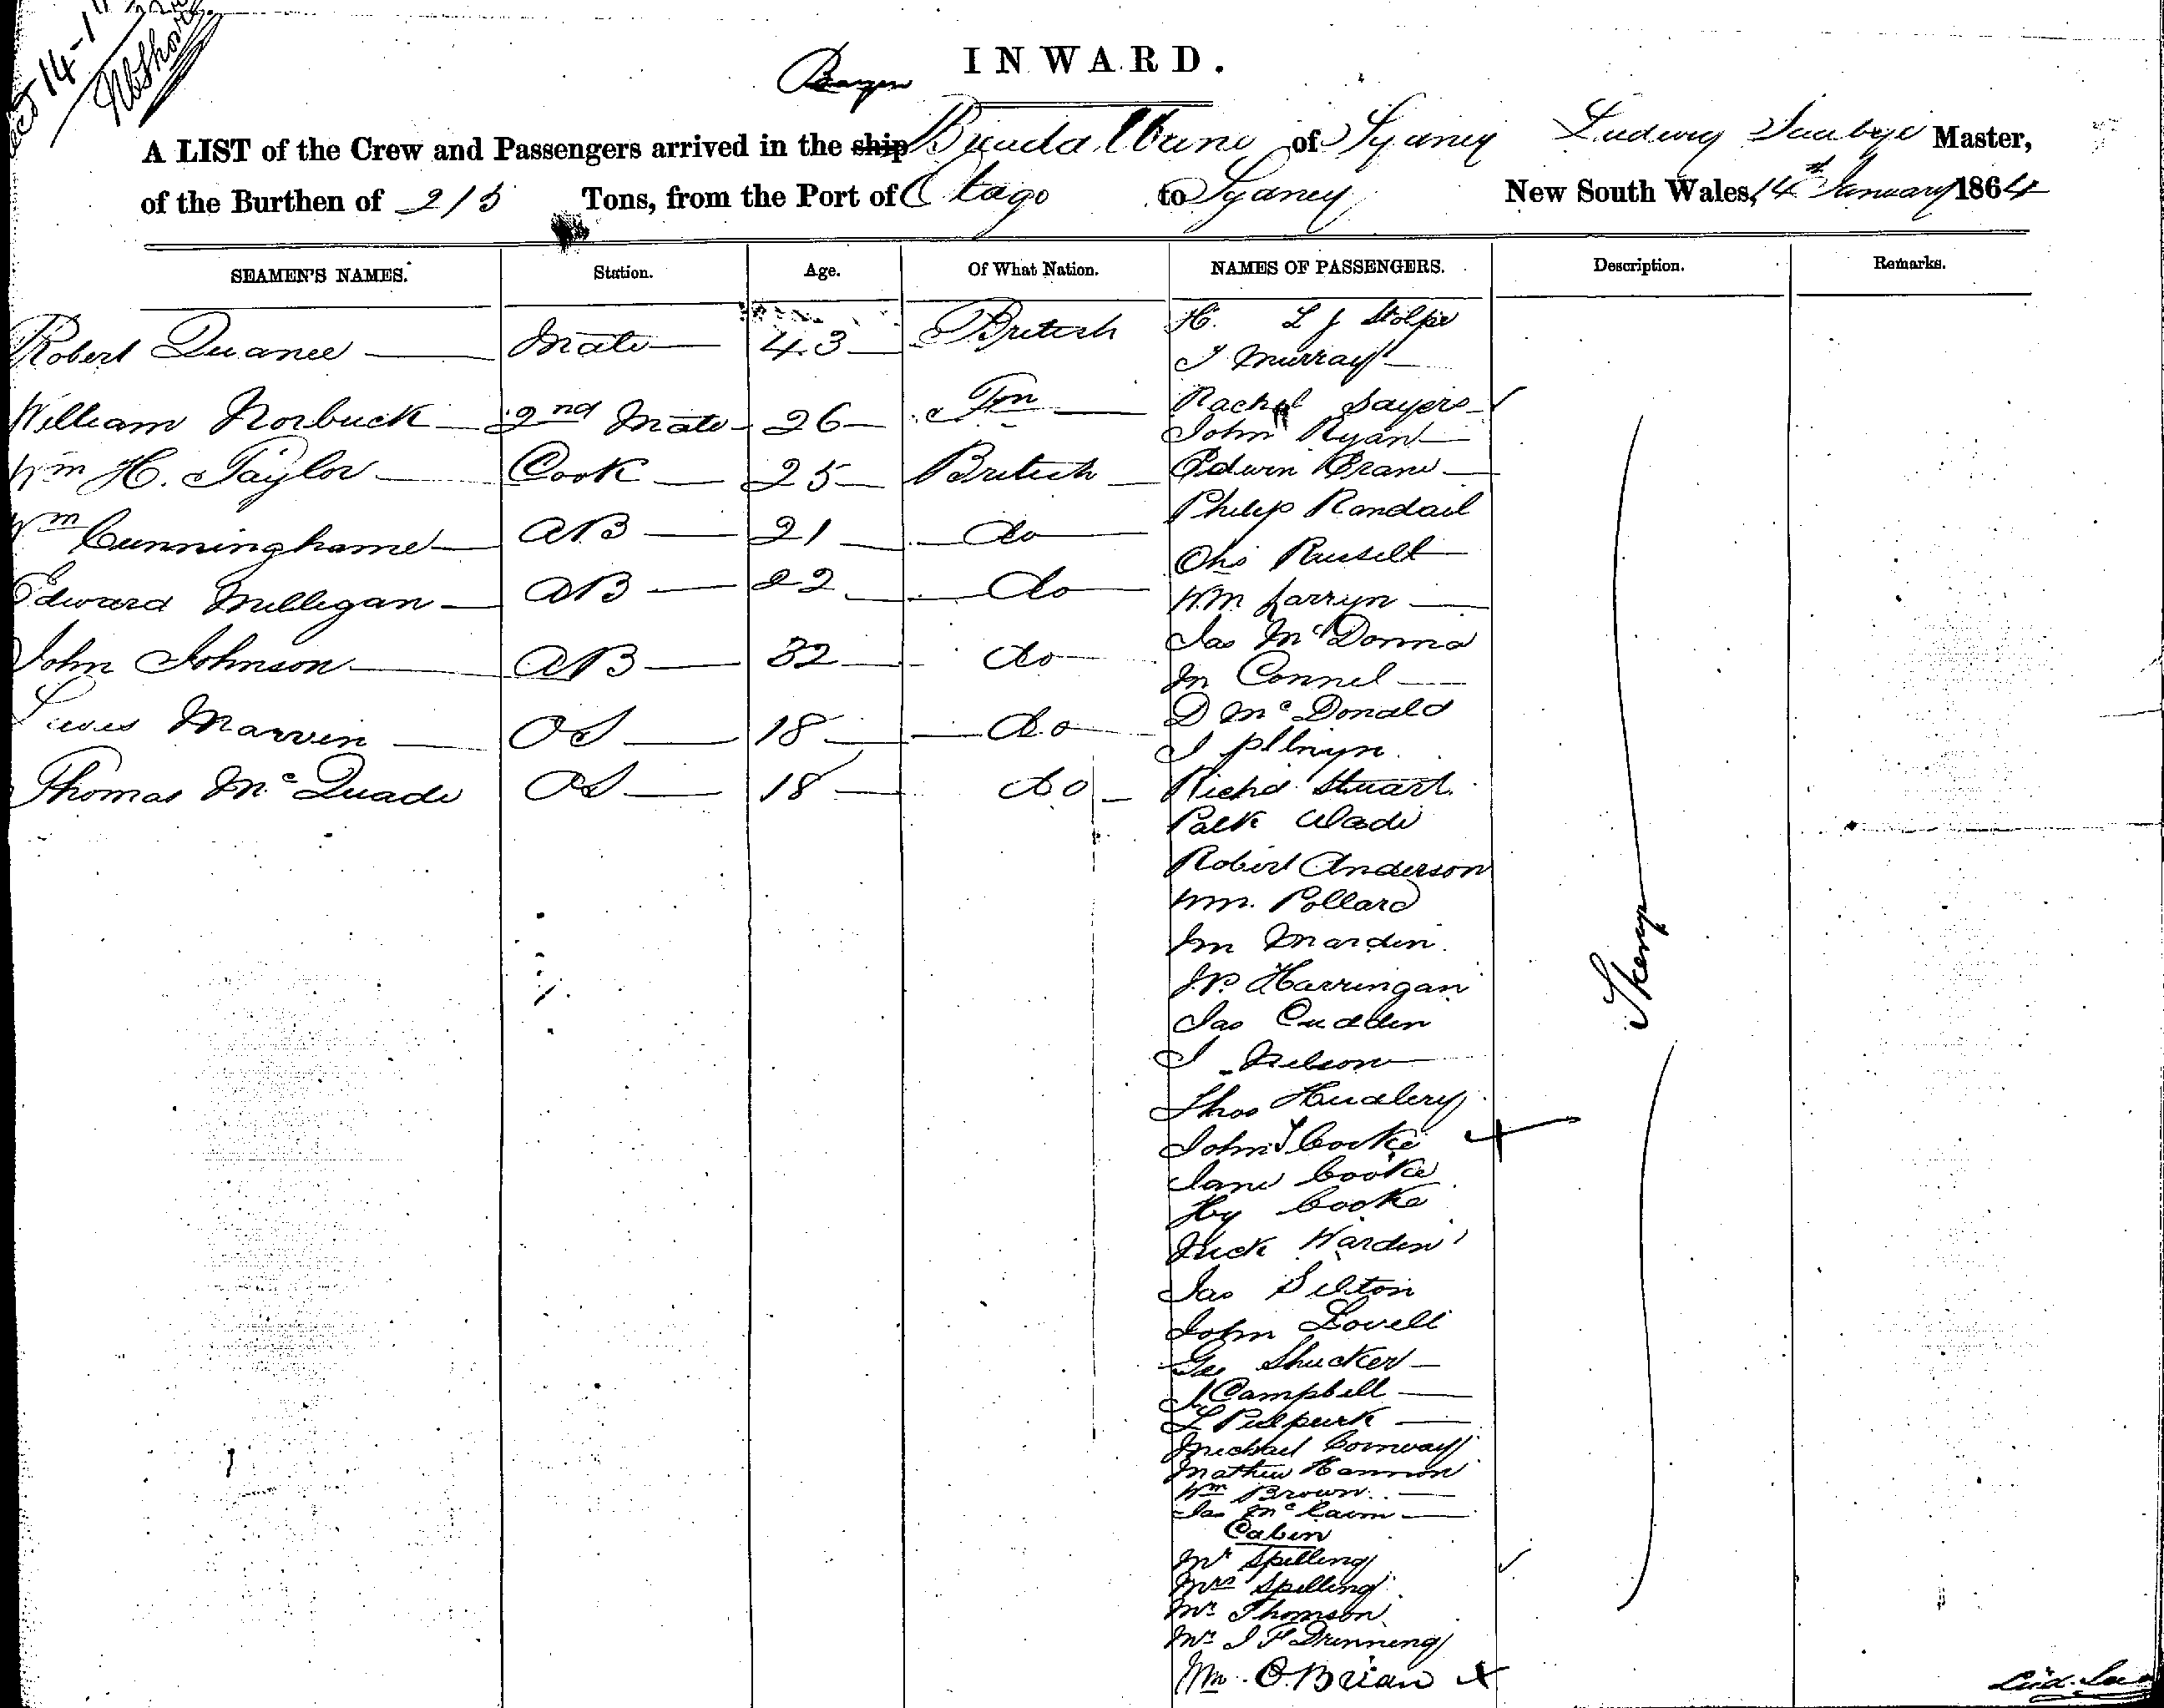 INWARD.
A LIST of the Crew and Passengers arrived in the ship of Sydney Ludwig Master,
of the Burthen of 215 Tons, from the Port of Otago to Sydney New South Wales, 14th January 1864
SEAMEN'S NAMES. Station. Age. Of What Nation. NAMES OF PASSENGERS. Description. Remarks.
Robert Quanee Mate 43 British
William Norbuck 2nd Mate 26
Wm H. Taylor Cook 25 British
Wm Cunninghame AB 21 do
Edward Milligan AB 22 do
John Johnson AB 32 do
Marvin OS 18 do
Thomas McQuade OS 18 do
H. L J Stolpe
J Murray
Rachel Sayers
John Ryan
Edwin
Philip Randall
Chs Russell
Wm
Jas McDonna
Jn Connel
D McDonald
J
Richd Stuart
Patk Wade
Robert Anderson
Wm. Pollard
Jm Mardin
Harringan
Jas Cudden
J Nelson
Thos
John T Cooke
Jane Cooke
Hy Cooke
Warden
Jas Silton
John Lovell
Geo Shucker
J Campbell
L
Michael Conway
Mathew Hannon
Wm Brown
Jas
Cabin
Mr Spilling
Mrs Spilling
Mr Thomson
Mr J F Drenning
Wm. O.Brian